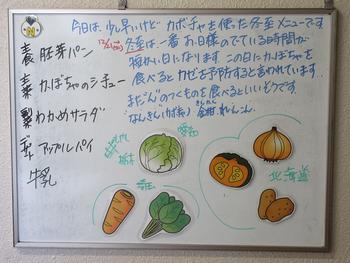 今日は、少し早いけど カボチャを使った冬至メニューです
冬至は一番お日様のでている時間が
短かい日になります。この日にかぼちゃを
食べるとカゼを予防すると言われています。
また"ん"のつくものを食べるといいそうです。
なんきん(かぼちゃ) 金柑 れんこん
きんかん
12/21(
主食 胚芽パン
主菜 かぼちゃのシチュー
副菜 わかめサラダ
デザート アップルパイ
牛乳
愛知
栃木
埼玉
北海道